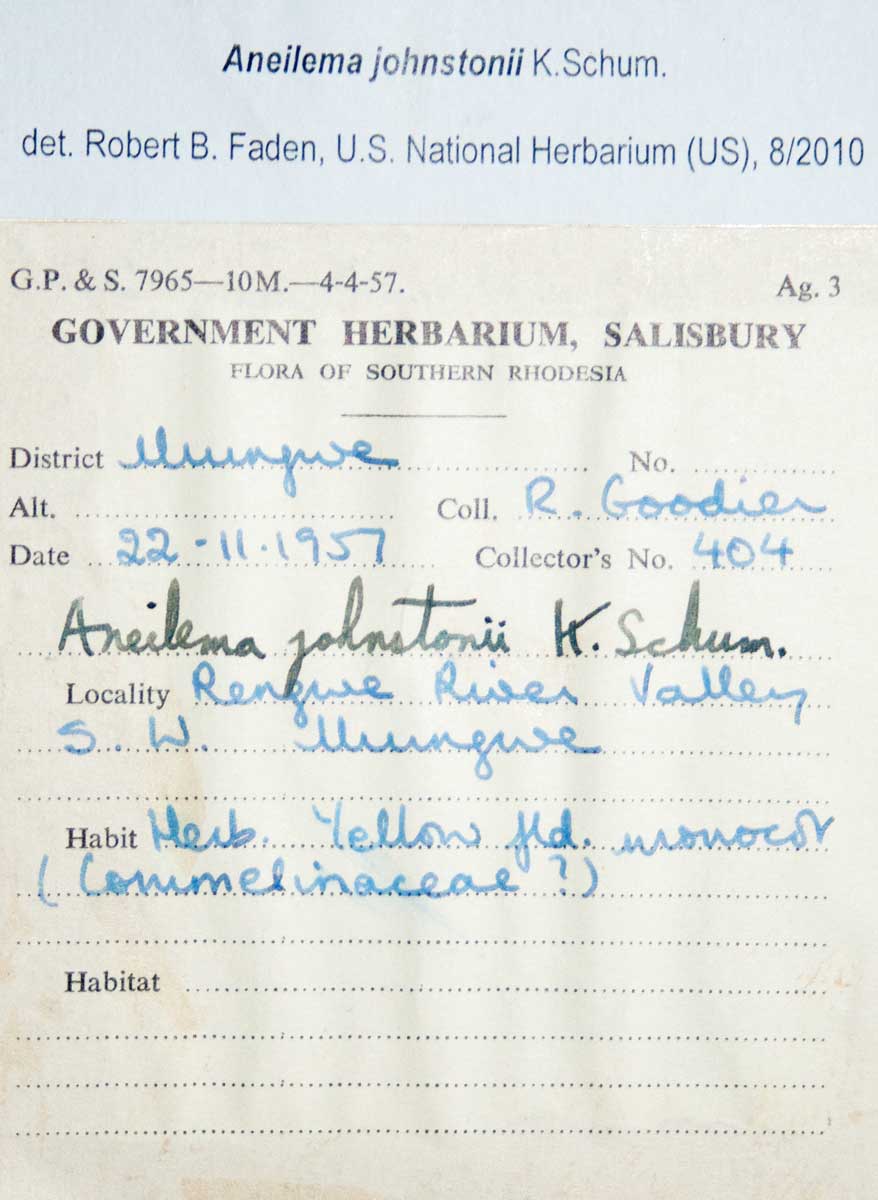 Aneilema johnstonii K.Schum.
det. Robert B. Faden, U.S. National Herbarium (US), 8/2010
G.P. & S. 7965—10M.—4-4-57. Ag. 3
GOVERNMENT HERBARIUM, SALISBURY
FLORA OF SOUTHERN RHODESIA
District Urungwe No.
Alt. Coll. R. Goodier
Date 22-11-1957 Collector's No. 404
Aneilema johnstonii K. Schum.
Locality Rengwe River Valley
S. W. Urungwe
Habit Herb. Yellow fld. monocot
(Commelinaceae ?)
Habitat